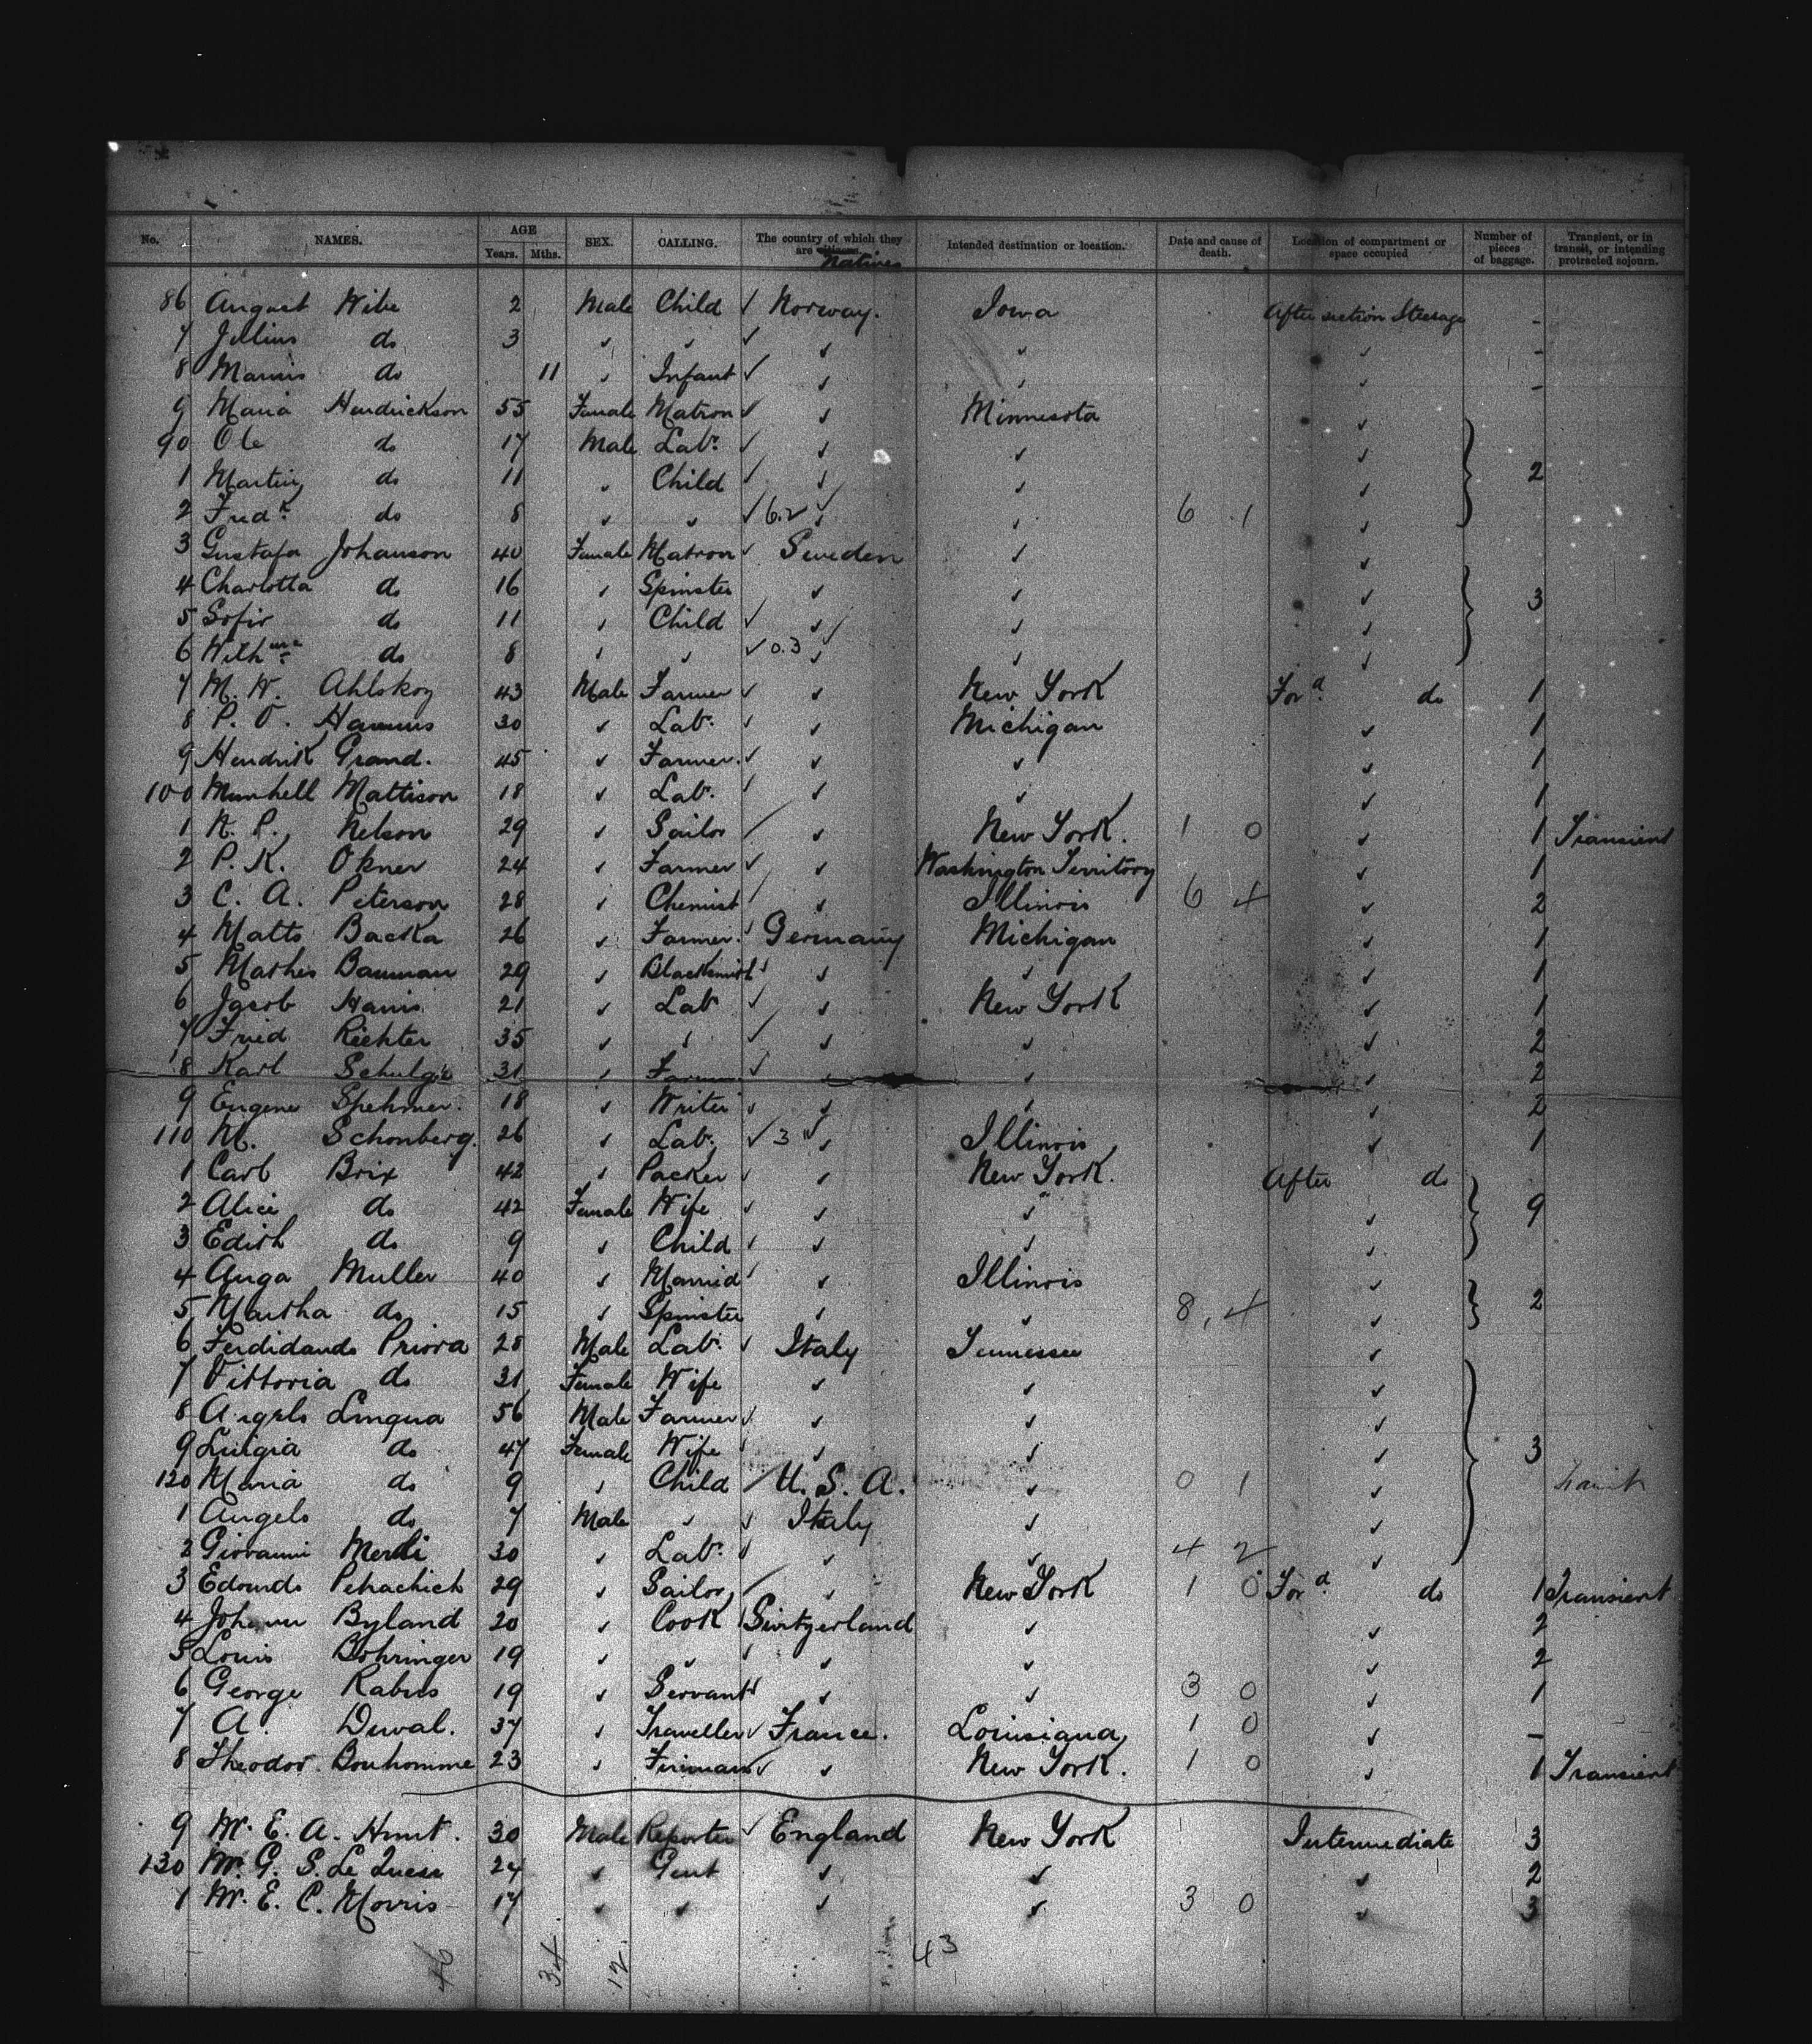 No. NAMES. AGE Years. Mths. SEX. CALLING. The country of which they are citizens Natives Intended destination or location. Date and cause of death. Location of compartment or space occupied Number of pieces of baggage. Transient, or in transit, or intending protracted sojourn.
86 August Wibe 2 Male Child ✓ Norway. Iowa After section Steerage -
7 Julius do 3 ✓ ✓ ✓ ✓ ✓ ✓ -
8 Marius do 11 ✓ Infant ✓ ✓ ✓ ✓ -
9 Maria Hendrickson 55 Female Matron ✓ ✓ Minnesota ✓
90 Ole do 17 Male Labr ✓ ✓ ✓ ✓
1 Martin do 11 ✓ Child ✓ ✓ ✓ ✓ 2
2 Fredk do 8 ✓ ✓ ✓ 6.2 ✓ ✓ ✓ 6 1 ✓
3 Gustafa Johanson 40 Female Matron ✓ Sweden ✓ ✓
4 Charlotta do 16 ✓ Spinster ✓ ✓ ✓ 3
5 Sofir do 11 ✓ Child ✓ ✓ ✓ ✓
6 Wilhme do 8 ✓ ✓ ✓ 0.3 ✓ ✓ ✓ ✓
7 M. W. Ahlskog 43 Male Farmer ✓ ✓ New York Ford do 1
8 P. O. 30 ✓ Labr ✓ ✓ Michigan ✓ 1
9 Hendrik Grand. 45 ✓ Farmer. ✓ ✓ ✓ ✓ 1
100 Munhell Mattison 18 ✓ Labr ✓ ✓ ✓ ✓ 1
1 N. P. Nelson 29 ✓ Sailor ✓ ✓ New York. 1 0 ✓ 1 Transient
2 P. K. Okner 24 ✓ Farmer ✓ ✓ Washington Territory ✓ 1
3 C. A. Peterson 28 ✓ Chemist ✓ ✓ Illinois 6 4 ✓ 2
4 Matts Backa 26 ✓ Farmer. ✓ Germany Michigan ✓ 1
5 Mathis Bauman 29 ✓ Blacksmith ✓ ✓ ✓ ✓ 1
6 Jacob Harris 21 ✓ Labr ✓ ✓ New York ✓ 1
7 Fried Richter 35 ✓ ✓ ✓ ✓ ✓ ✓ 2
8 Karl Schulze 31 ✓ Farmer ✓ ✓ ✓ ✓ 2
9 Eugene Spehmer. 18 ✓ Writer ✓ ✓ ✓ ✓ 2
110 M. Schonberg. 26 ✓ Labr ✓ 3 ✓ ✓ Illinois ✓ 1
1 Carl Brix 42 ✓ Packer ✓ ✓ New York. After do
2 Alice do 42 Female Wife ✓ ✓ ✓ ✓ 9
3 Edith do 9 ✓ Child ✓ ✓ ✓ ✓
4 Auga Muller 40 ✓ Married ✓ ✓ Illinois ✓
5 Martha do 15 ✓ Spinster ✓ ✓ 8, 4 ✓ 2
6 Ferdidando Priora 28 Male Labr ✓ Italy Tennessee ✓
7 Vittoria do 21 Female Wife ✓ ✓ ✓
8 Angelo Lingua 56 Male Farmer ✓ ✓ ✓ ✓
9 Luigia do 47 Female Wife ✓ ✓ ✓ ✓ 3
120 Maria do 9 ✓ Child ✓ U. S. A. ✓ 0 1 ✓
1 Angelo do 7 Male ✓ ✓ Italy ✓ ✓
2 Giovanni Merdi 30 ✓ Labr ✓ ✓ ✓ 4 2 ✓
3 Edoundo Petrachich 29 ✓ Sailor ✓ ✓ New York 1 0 Ford do 1 Transient
4 Johann Byland 20 ✓ Cook Switzerland ✓ ✓ 2
5 Louis Bohringer 19 ✓ ✓ ✓ ✓ ✓ ✓ 2
6 George Rabus 19 ✓ Servant ✓ ✓ ✓ 3 0 ✓ 1
7 A. Duval. 37 ✓ Traveller ✓ France. Louisiana 1 0 ✓ -
8 Theodor. Bonhomme 23 ✓ Fireman ✓ ✓ New York. 1 0 ✓ 1 Transient
9 Mr. E. A. Hunt. 30 Male Reporter ✓ England New York Intermediate 3
130 Mr. G. S. Le Quesne 24 ✓ Gent ✓ ✓ ✓ 2
1 Mr. E. C. Morris 17 ✓ ✓ ✓ ✓ 3 0 ✓ 3
46 34 12 43